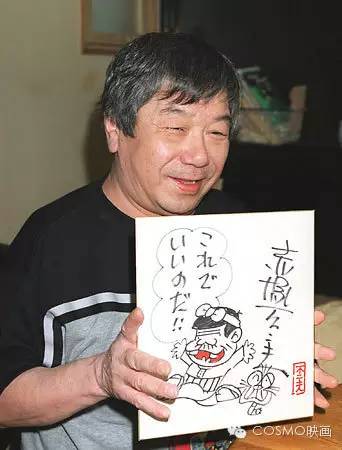 これで
いいのだ!!
赤塚不二夫
COSMO映画